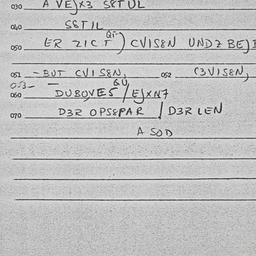 030 A VEJX3 S8TUL
040 S8TIL
050 ER ZICT) CVIS8N UND3 BEJ
051 - BUT CVIS8N, 052 C3VIS8N,
053-
060 DUBQVES / EJXN7
070 D3R OPS8PAR / D3R LEN
A SOD